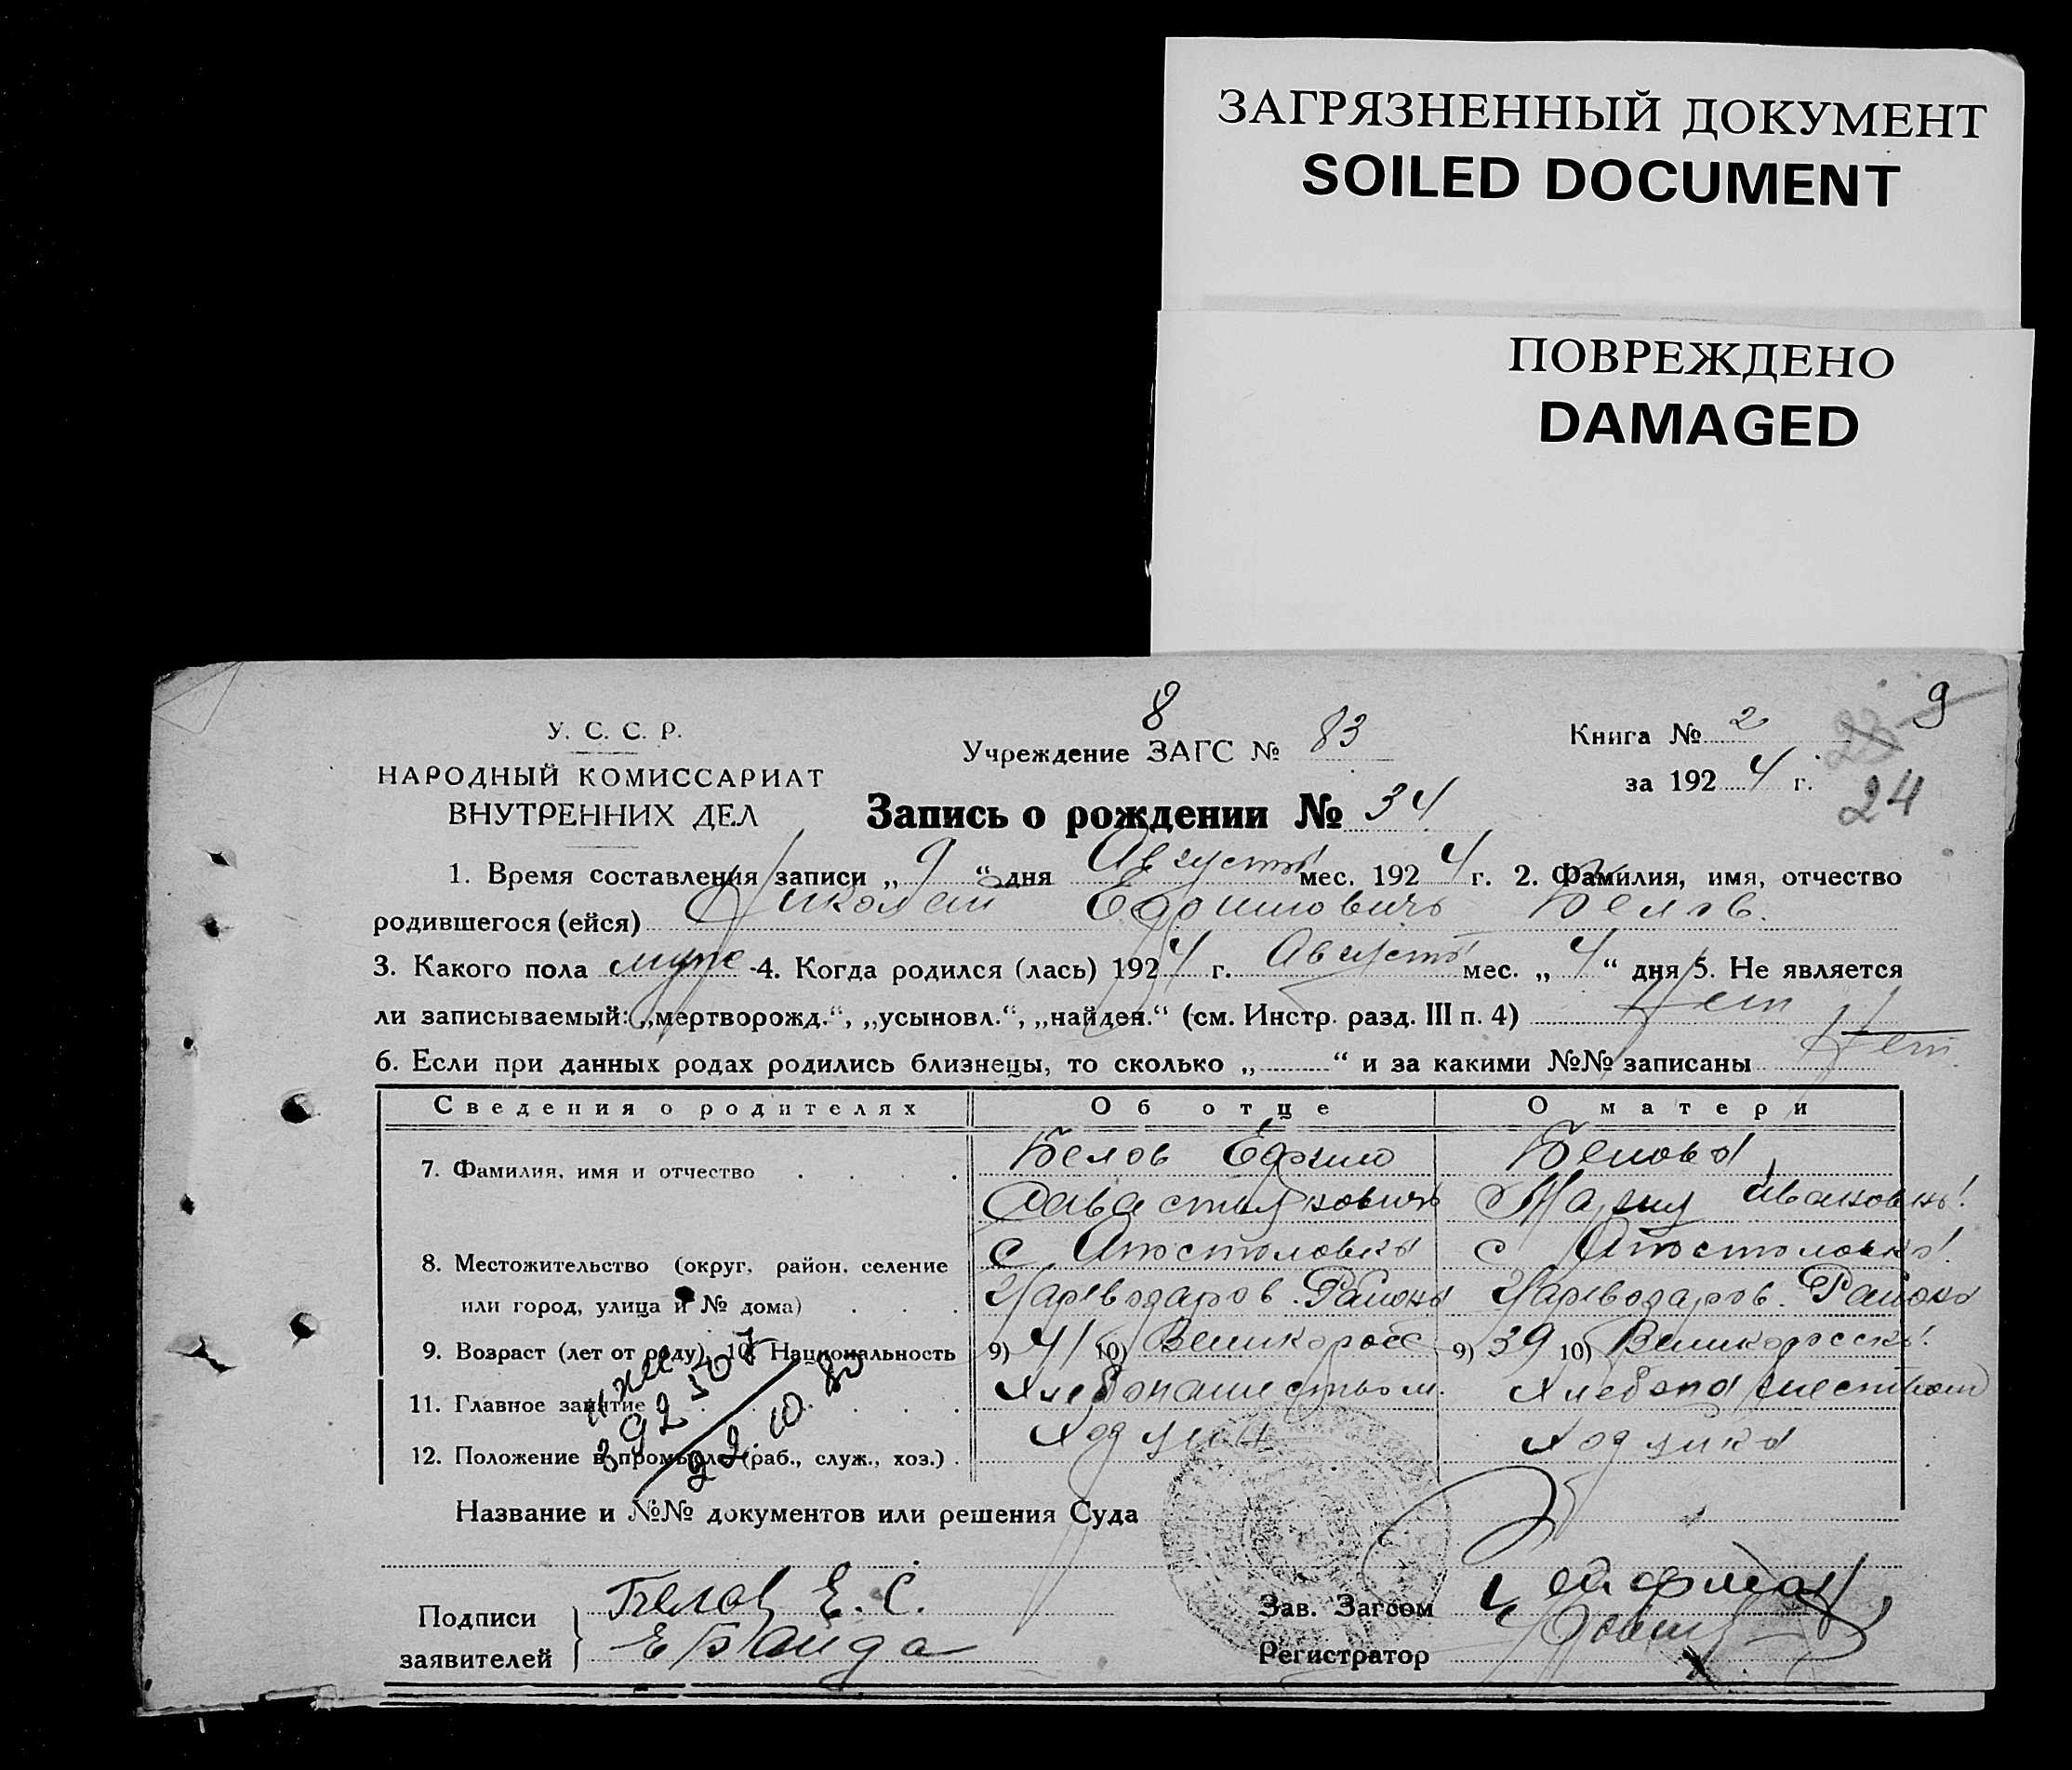 ЗАГРЯЗНЕННЫЙ ДОКУМЕНТ
SOILED DOCUMENT
ПОВРЕЖДЕНО
DAMAGED
8
9
У. С. С. Р.
НАРОДНЫЙ КОМИССАРИАТ
ВНУТРЕННИХ ДЕЛ
Учреждение ЗАГС № 83
Книга № 2
за 1924 г.
24
Запись о рождении № 34
1. Время составления записи „9“ дня Августа мес. 1924 г. 2. Фамилия, имя, отчество
родившегося (ейся) Николай Ефимовичъ Белов.
3. Какого пола муж 4. Когда родился (лась) 1924 г. Августа мес. „4“ дня 5. Не является
ли записываемый: „мертворожд.“, „усыновл.“, „найден.“ (см. Инстр. разд. III п. 4) Нет
6. Если при данных родах родились близнецы, то сколько „ “ и за какими №№ записаны Нет
Сведения о родителях Об отце О матери
7. Фамилия, имя и отчество Белов Ефим Белова
Савастьяновичъ Мария Ивановна
8. Местожительство (округ, район, селение с Апостоловка с Апостоловка
или город, улица и № дома) Цареводаров. Района Цареводаров. Района
9. Возраст (лет от роду) 10. Национальность 9) 41 10) Великоросс 9) 39 10) Великоросска
11. Главное занятие Хлебопашеством. Хлебопашеством
12. Положение в промысле (раб., служ., хоз.) Ходяин Ходяика
Название и №№ документов или решения Суда
Подписи заявителей Белов Е. С.
Е Байда
Зав. Загсом
Регистратор